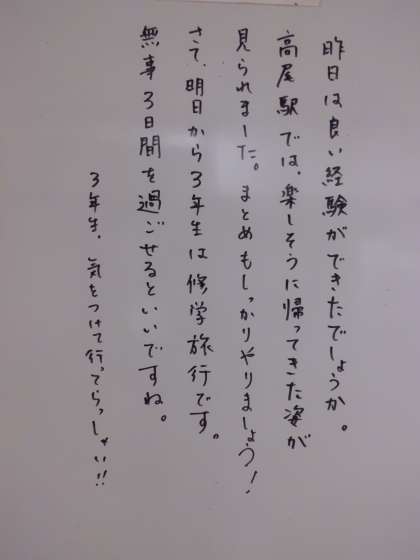 昨日は良い経験ができたでしょうか。
高尾駅では、楽しそうに帰ってきた姿が
見られました。まとめもしっかりやりましょう!
さて、明日から3年生は修学旅行です。
無事3日間を過ごせるといいですね。
3年生、気をつけて行ってらっしゃい!!